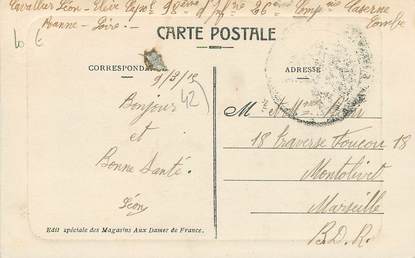 Cavallier Léon - Elève Cap^al 98^ème d'Inf^rie 26^ème Comp^nie Caserne Combe
Roanne - Loire -
CARTE POSTALE
CORRESPONDANCE
ADRESSE
9/3/15
42
Bonjour
et
Bonne Santé.
Léon
M^r et M^me
18 Traverse Foucou 18
Montolivet
Marseille
B.D.R.
Edit spéciale des Magasins Aux Dames de France.